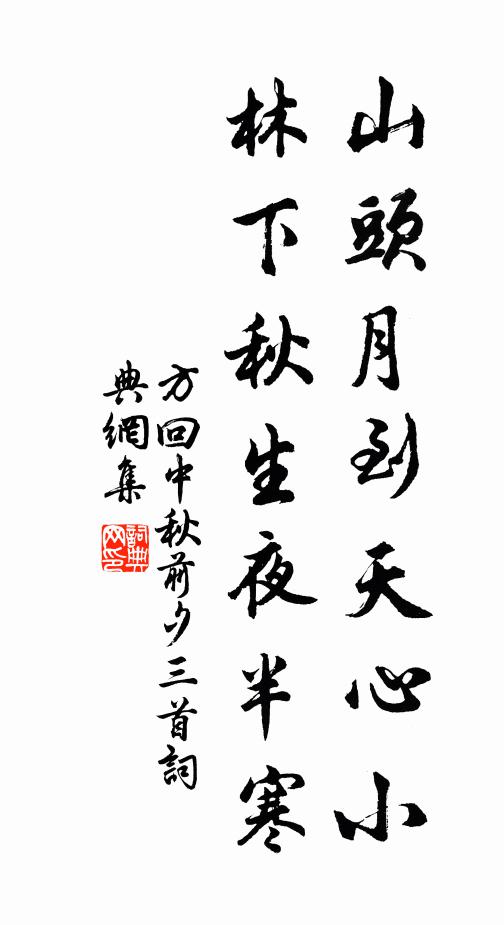 山頭月到天心小
林下秋生夜半寒
方回中秋前夕三首詞
典網集
詞典
网印